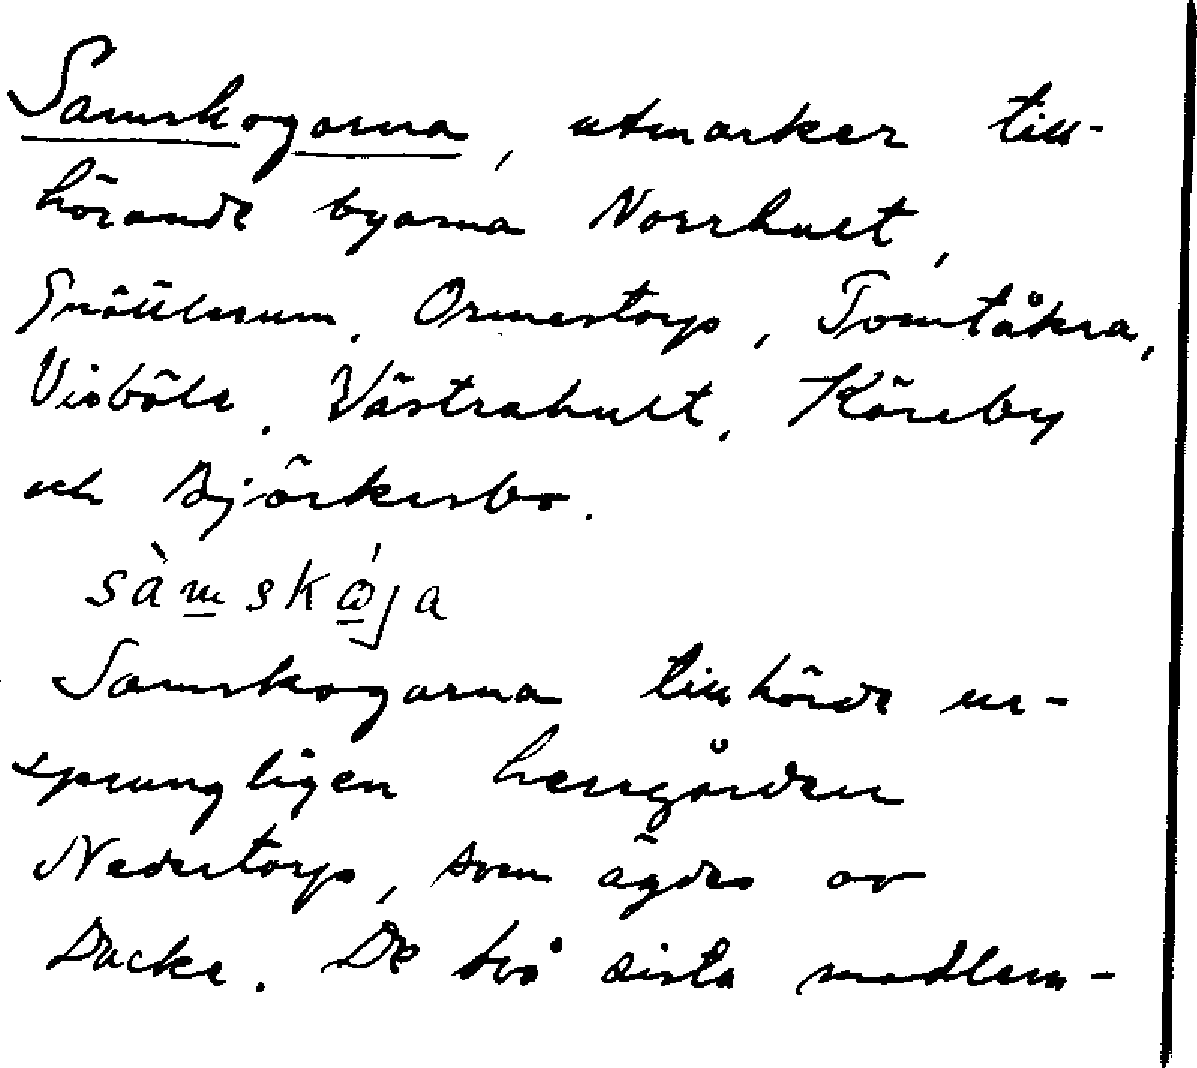 Samskogarna, utmarker till-
hörande byarna Norrhult,
Ormestorp, Tomtåkra,
Visböle, Västrahult, Käreby
och Björkerbo.
sàmskója
Samskogarna tillhörde ur-
sprungligen herrgården
Nedertorp, som ägdes av
Dacke. De två sista medlem-